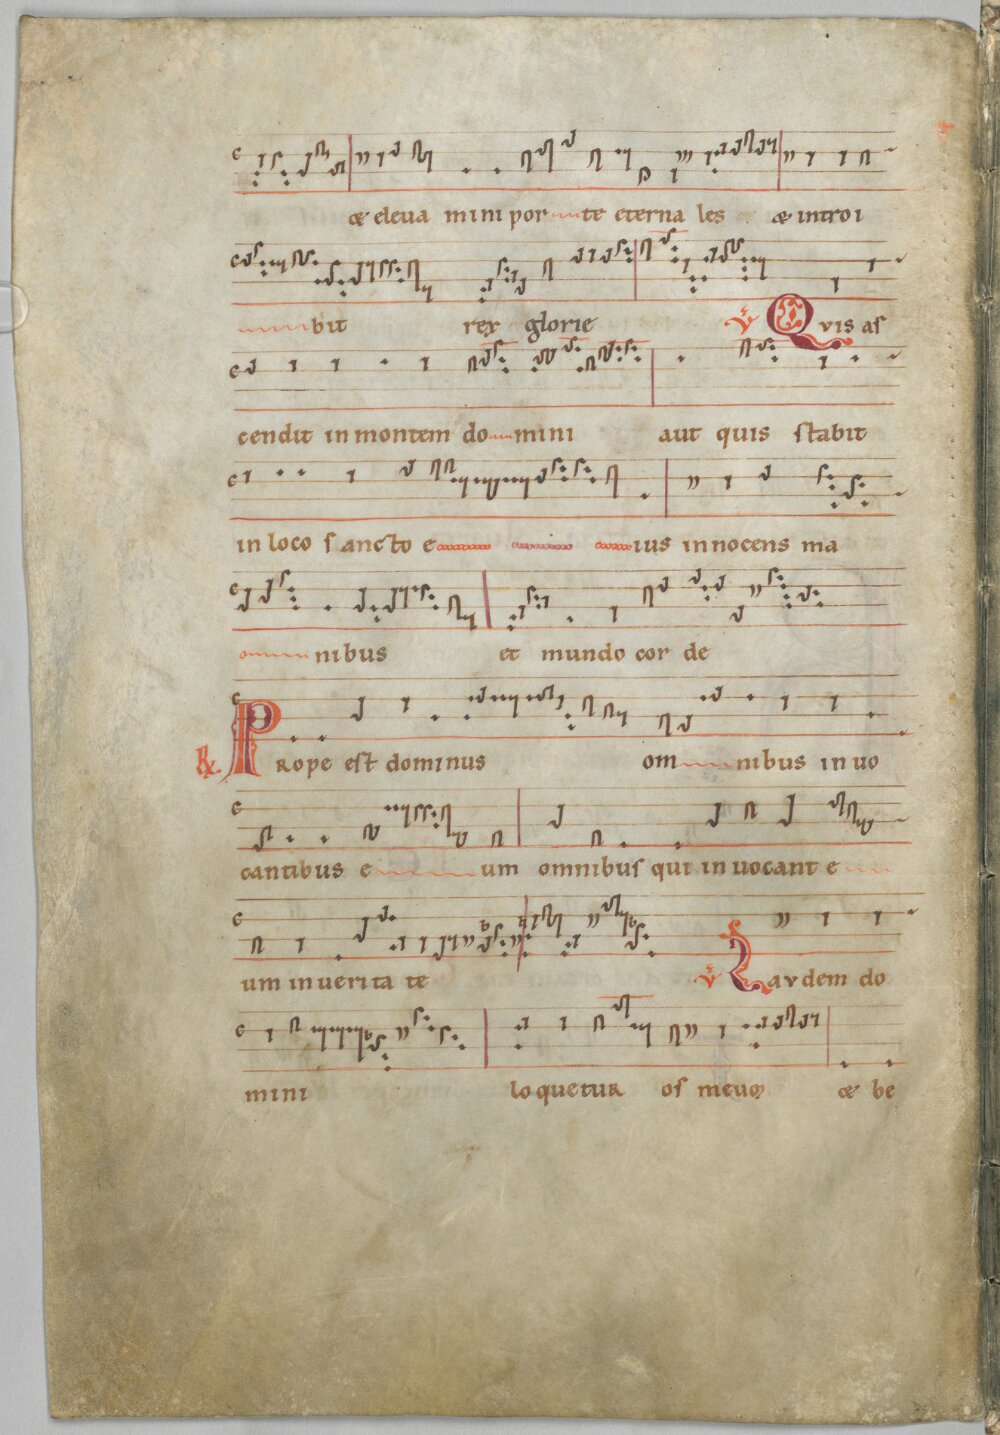 æ eleva mini por te eterna les æ introi
bit rex glorie ℣ Qvis as
cendit in montem do mini aut quis stabit
in loco sancto e ius innocens ma
nibus et mundo cor de
℟ Prope est dominus om nibus in uo
cantibus e um omnibus qui in uocant e
um in uerita te ℣ Lavdem do
mini loquetur os meuꝫ æ be